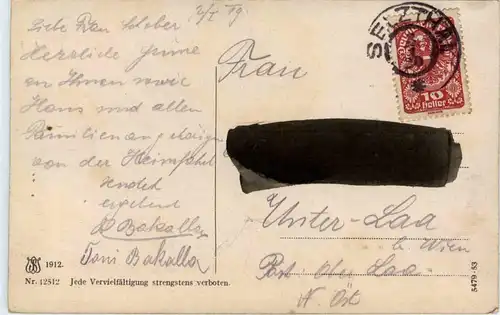 2/I 19.
Liebe Frau Schober
Herzliche Grüsse
an Ihnen sowie
Hans und allen
Familienangehörigen
von der Heimfahrt
sendet
ergebend
Bakalla
Toni Bakalla
1912.
Nr. 12512 Jede Vervielfältigung strengstens verboten.
SELZTHAL
10
Heller
Frau
Unter-Laa
b. Wien
Post Ober Laa
N. Öst
5479-53